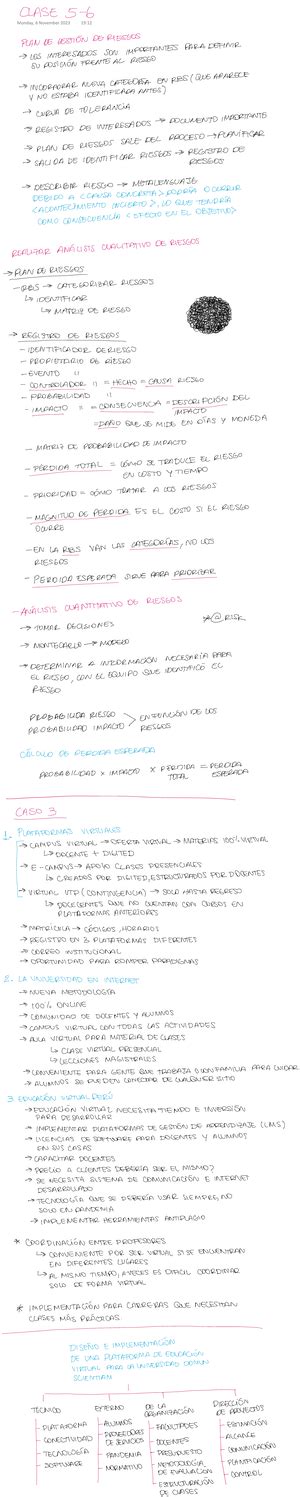 CLASE 5-6
Monday, 6 November 2023 19:12
PLAN DE GESTIÓN DE RIESGOS
→ LOS INTERESADOS SON IMPORTANTES PARA DEFINIR
SU POSICIÓN FRENTE AL RIESGO
→ INCORPORAR NUEVA CATEGORÍA EN RBS (QUE APARECE
Y NO ESTABA IDENTIFICADA ANTES)
→ CURVA DE TOLERANCIA
→ REGISTRO DE INTERESADOS → DOCUMENTO IMPORTANTE
→ PLAN DE RIESGOS SALE DEL PROCESO → PLANIFICAR
→ SALIDA DE IDENTIFICAR RIESGOS → REGISTRO DE
RIESGOS
→ DESCRIBIR RIESGO → METALENGUAJE
DEBIDO A <CAUSA CONCRETA> PODRÍA OCURRIR
<ACONTECIMIENTO INCIERTO>, LO QUE TENDRÍA
COMO CONSECUENCIA <EFECTO EN EL OBJETIVO>
REALIZAR ANÁLISIS CUALITATIVO DE RIESGOS
→ PLAN DE RIESGOS
- RBS → CATEGORIZAR RIESGOS
↳ IDENTIFICAR
↳ MATRIZ DE RIESGO
→ REGISTRO DE RIESGOS
- IDENTIFICADOR DE RIESGO
- PROPIETARIO DE RIESGO
- EVENTO "
- CONTROLADOR " = HECHO = CAUSA RIESGO
- PROBABILIDAD "
- IMPACTO " = CONSECUENCIA = DESCRIPCIÓN DEL
IMPACTO
= DAÑO QUE SE MIDE EN DÍAS Y MONEDA
- MATRIZ DE PROBABILIDAD DE IMPACTO
- PÉRDIDA TOTAL = CÓMO SE TRADUCE EL RIESGO
EN COSTO Y TIEMPO
- PRIORIDAD = CÓMO TRATAR A LOS RIESGOS
- MAGNITUD DE PERDIDA ES EL COSTO SI EL RIESGO
OCURRE
- EN LA RBS VAN LAS CATEGORÍAS, NO LOS
RIESGOS
- PERDIDA ESPERADA SIRVE PARA PRIORIZAR
- ANÁLISIS CUANTITATIVO DE RIESGOS
→ TOMAR DECISIONES
* @RISK
→ MONTECARLO → MODELO
→ DETERMINAR LA INFORMACIÓN NECESARIA PARA
EL RIESGO, CON EL EQUIPO QUE IDENTIFICÓ EL
RIESGO
PROBABILIDA RIESGO
PROBABILIDAD IMPACTO > EN FUNCIÓN DE LOS
CÁLCULO DE PERDIDA ESPERADA
PROBABILIDAD X IMPACTO X PÉRDIDA TOTAL = PERDIDA ESPERADA
CASO 3
1. PLATAFORMAS VIRTUALES
→ CAMPUS VIRTUAL → OFERTA VIRTUAL → MATERIAS 100% VIRTUAL
↳ DOCENTE + DIGITED
→ E-CAMPUS → APOYO CLASES PRESENCIALES
↳ CREADOS POR DIGITED, ESTRUCTURADOS POR DOCENTES
→ VIRTUAL UTP (CONTINGENCIA) → SOLO HASTA REGRESO
↳ DOCECENTES QUE NO CUENTAN CON CURSOS EN
PLATAFORMAS ANTERIORES
→ MATRICULA → CÓDIGOS, HORARIOS
→ REGISTRO EN 3 PLATAFORMAS DIFERENTES
→ CORREO INSTITUCIONAL
→ OPORTUNIDAD PARA ROMPER PARADIGMAS
2. LA UNIVERSIDAD EN INTERNET
→ NUEVA METODOLOGÍA
→ 100% ONLINE
→ COMUNIDAD DE DOCENTES Y ALUMNOS
→ CAMPUS VIRTUAL CON TODAS LAS ACTIVIDADES
→ AULA VIRTUAL PARA MATERIAL DE CLASES
↳ CLASE VIRTUAL PRESENCIAL
↳ LECCIONES MAGISTRALES
→ CONVENIENTE PARA GENTE QUE TRABAJA O CON FAMILIA PARA CUIDAR
→ ALUMNOS SE PUEDEN CONECTAR DE CUALQUIER SITIO
3. EDUCACIÓN VIRTUAL PERÚ
→ EDUCACIÓN VIRTUAL NECESITA TIEMPO E INVERSIÓN
PARA DESARROLLAR
→ IMPLEMENTAR PLATAFORMAS DE GESTIÓN DE APRENDIZAJE (LMS)
→ LICENCIAS DE SOFTWARE PARA DOCENTES Y ALUMNOS
EN SUS CASAS
→ CAPACITAR DOCENTES
→ PRECIO A CLIENTES DEBERÍA SER EL MISMO?
→ SE NECESITA SISTEMA DE COMUNICACIÓN E INTERNET
DESARROLLADO
→ TECNOLOGÍA QUE SE DEBERÍA USAR SIEMPRE, NO
SOLO EN PANDEMIA
→ IMPLEMENTAR HERRAMIENTAS ANTIPLAGIO
* COORDINACIÓN ENTRE PROFESORES
↳ CONVENIENTE POR SER VIRTUAL SI SE ENCUENTRAN
EN DIFERENTES LUGARES
↳ AL MISMO TIEMPO, A VECES ES DIFICIL COORDINAR
SOLO DE FORMA VIRTUAL
* IMPLEMENTACIÓN PARA CARRERAS QUE NECESITAN
CLASES MÁS PRÁCTICAS
DISEÑO E IMPLEMENTACIÓN
DE UNA PLATAFORMA DE EDUCACIÓN
VIRTUAL PARA LA UNIVERSIDAD DOMUN
SCIENTIAM
TECNICO
- PLATAFORMA
- CONECTIVIDAD
- TECNOLOGÍA
- SOFTWARE
EXTERNO
- ALUMNOS
- PROVEEDORES
DE SERVICIOS
- PANDEMIA
- NORMATIVO
DE LA
ORGANIZACIÓN
- FACULTADES
- DOCENTES
- PRESUPUESTO
- METODOLOGÍA
DE EVALUACION
- ESTRUCTURACIÓN
DE CLASES
DIRECCIÓN
DE PROYECTOS
- ESTIMACIÓN
- ALCANCE
- COMUNICACIÓN
- PLANIFICACIÓN
- CONTROL